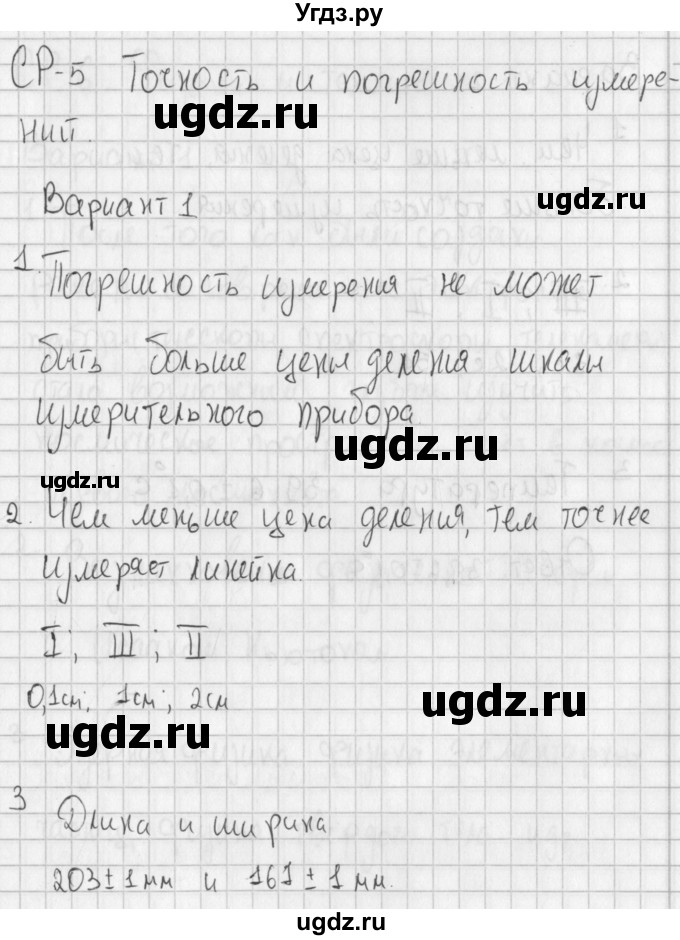 Угдз.ру
СР-5 Точность и погрешность измере-
ugdz.ru
ний.
Вариант 1
ugdz.ru
1. Погрешность измерения не может
быть больше цены деления шкалы
измерительного прибора
ugdz.ru
ugdz.ru
2. Чем меньше цена деления, тем точнее
измеряет линейка.
I; III; II
0,1см; 1см; 2см
ugdz.ru
ugdz.ru
3 Длина и ширина
203±1мм и 161±1мм.
ugdz.ru